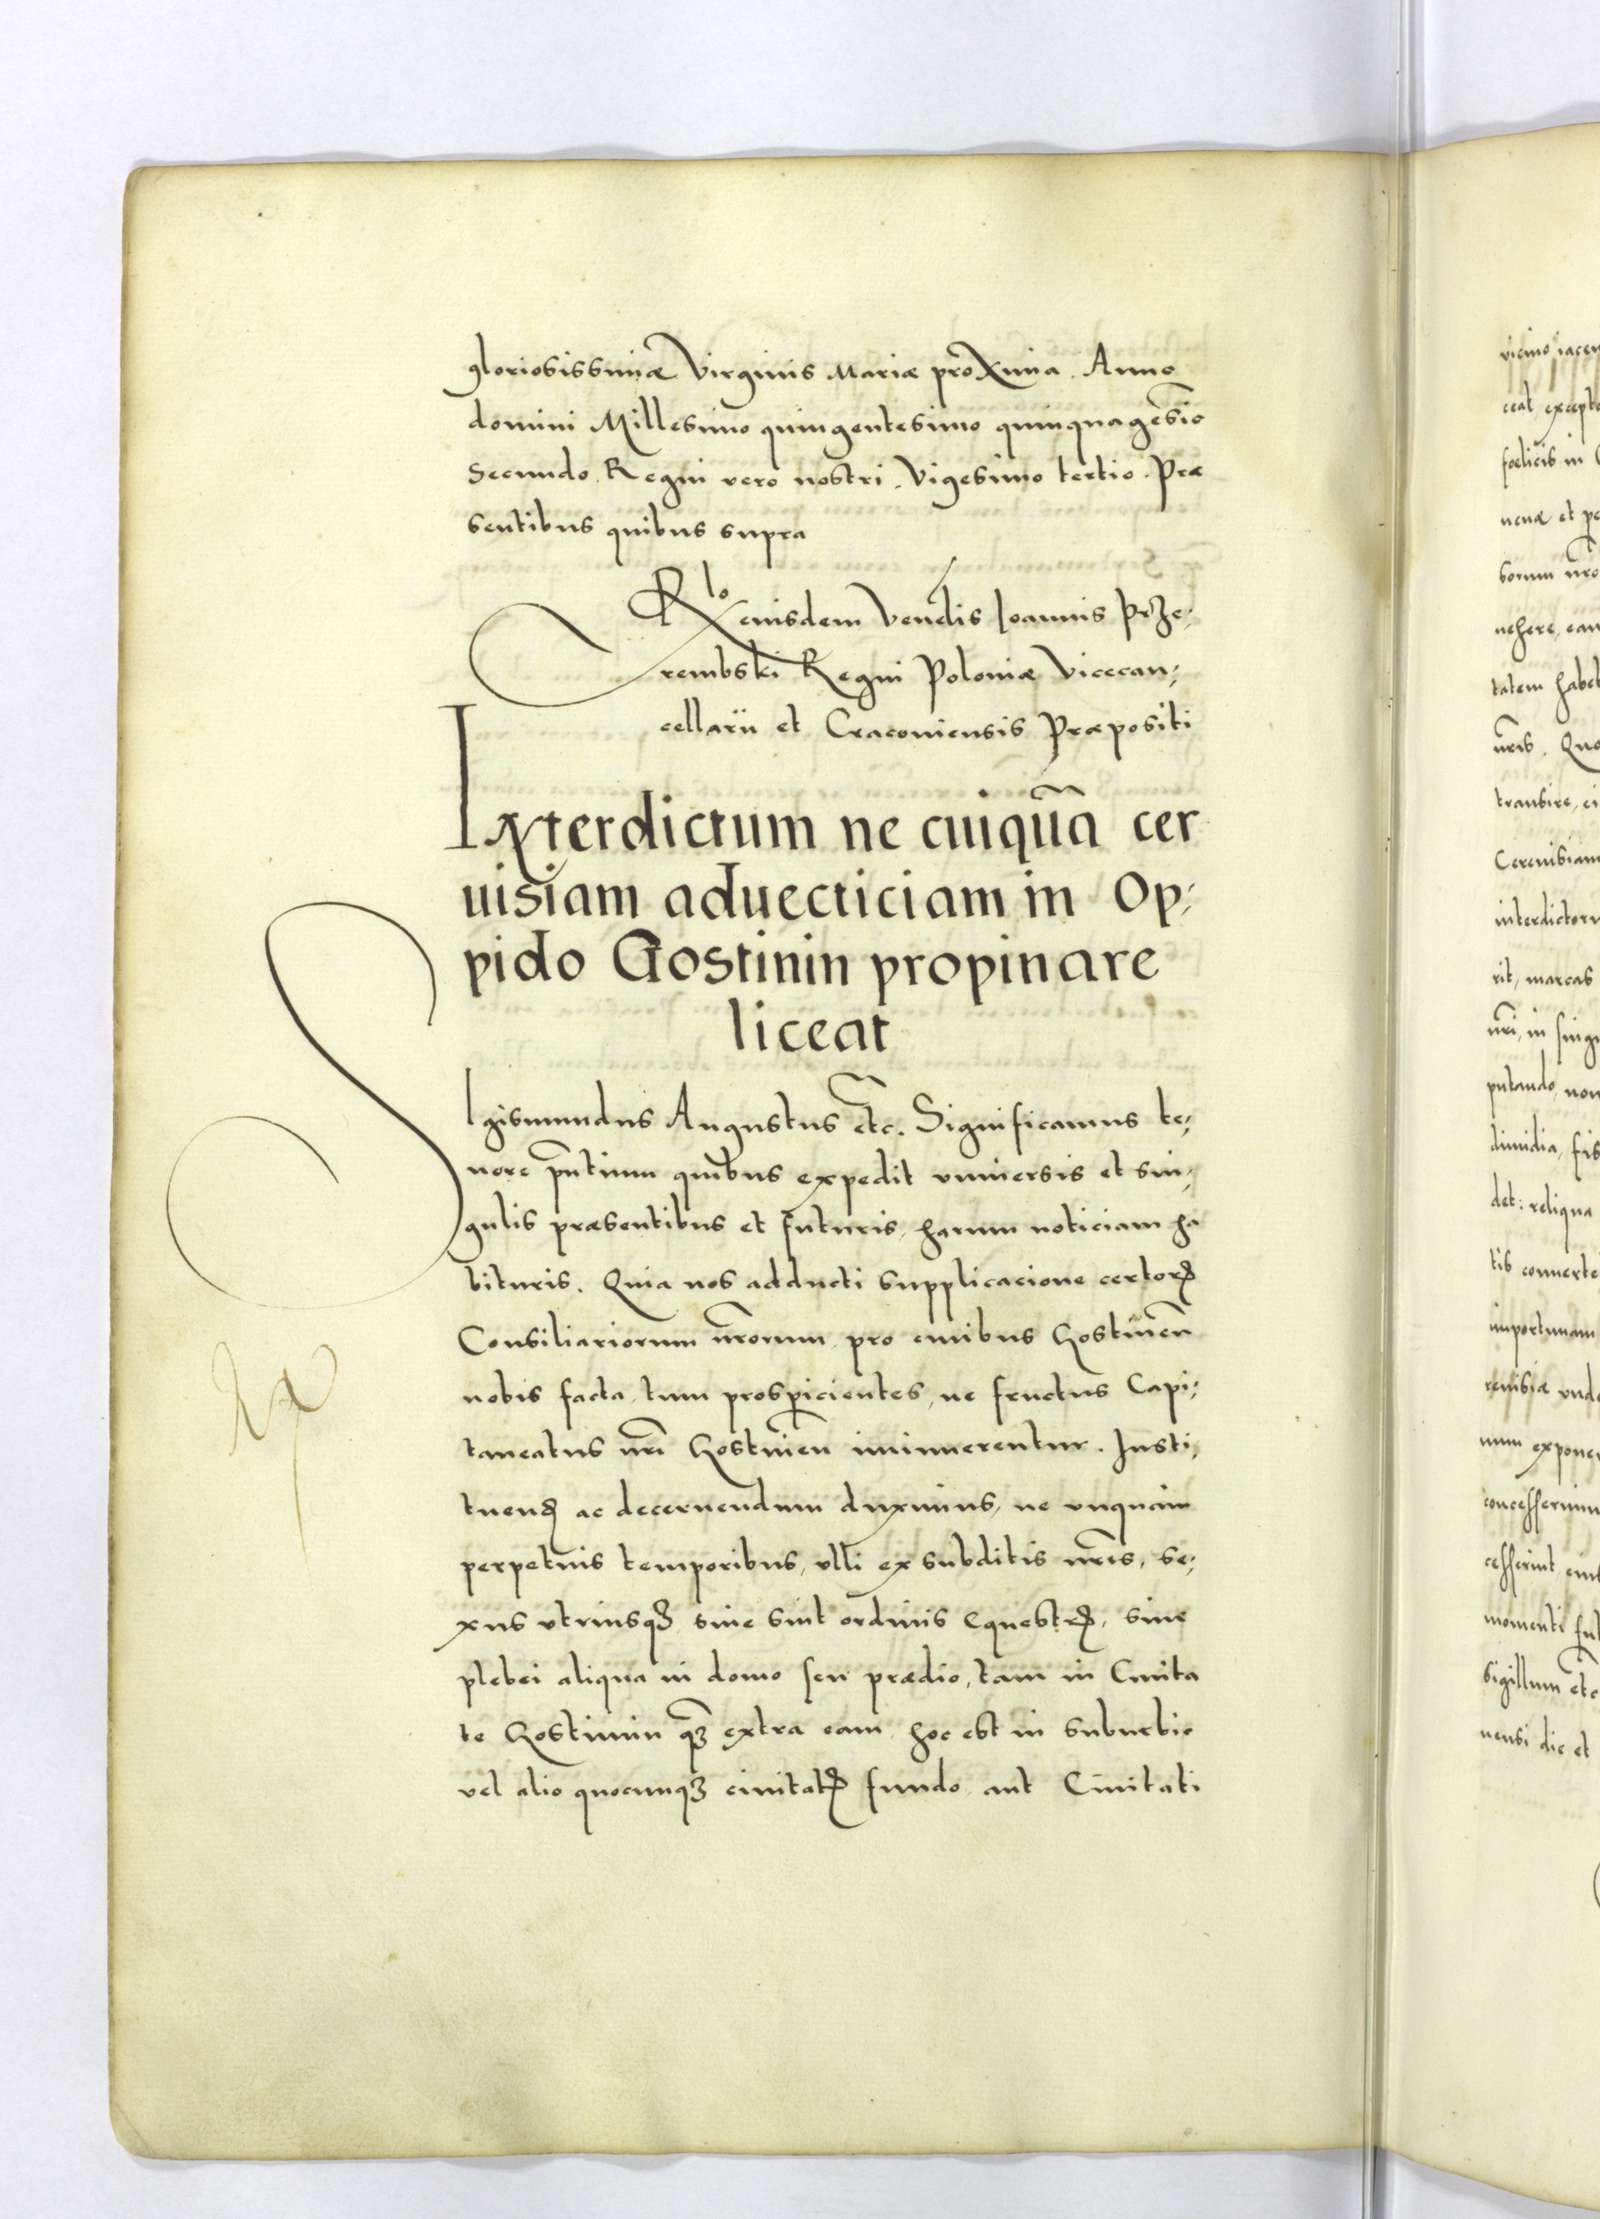 gloriosissimæ Virginis Mariæ proXima. Anno
domini Millesimo quingentesimo quinquagēsio
Secundo. Regni vero nostri. Vigesimo tertio. Præ
sentibus quibus supra
Rlo eiusdem Venedis Ioannis Prze,
rembski Regni Poloniæ Vicecan,
cellarii et Cracouiensis Præpositi
Interdictum ne cuiquā cer
uisiam aduecticiam in Op,
pido Gostinin propinare
liceat
SIgismundus Augustus etc. Significamus te,
nore pñtium quibus expedit vniuersis et sin,
gulis præsentibus et futuris, harum noticiam ha
bituris. Quia nos adducti supplicacione certoꝝ
Consiliariorum nr̄orum, pro ciuibus Gostinen̄
nobis facta, tum prospicientes, ne fructus Capi,
taneatus nr̄i Gostinien̄ imminuerentur. Insti,
tuenđ ac decernendum duximus, ne vnquam
perpetuis temporibus, vlli ex subditis nr̄is, se,
xus vtriusqꝫ siue sint ordinis Equestrꝭ, siue
plebei aliqua in domo seu prædio, tam in Ciuita
te Gostinin qꝫ extra eam, hoc est in suburbio
vel alio quocunqꝫ ciuitatꝭ fundo, aut Ciuitati
vicino iacen
ceat, except
fœlicis in
uenæ et pe
borum nr̄o
uehere, eam
tatem habeb
nr̄is. Quo
transire, ci
Cereuisiam
interdictor
rit, marcas
nr̄i, in sing
putando, non
dimidia, fis
det: reliqua
tis conuerte
importunam
reuisiæ vnde
num expone
concesserim
cesserint, eius
momenti fu
Sigillum etc
nensi die et